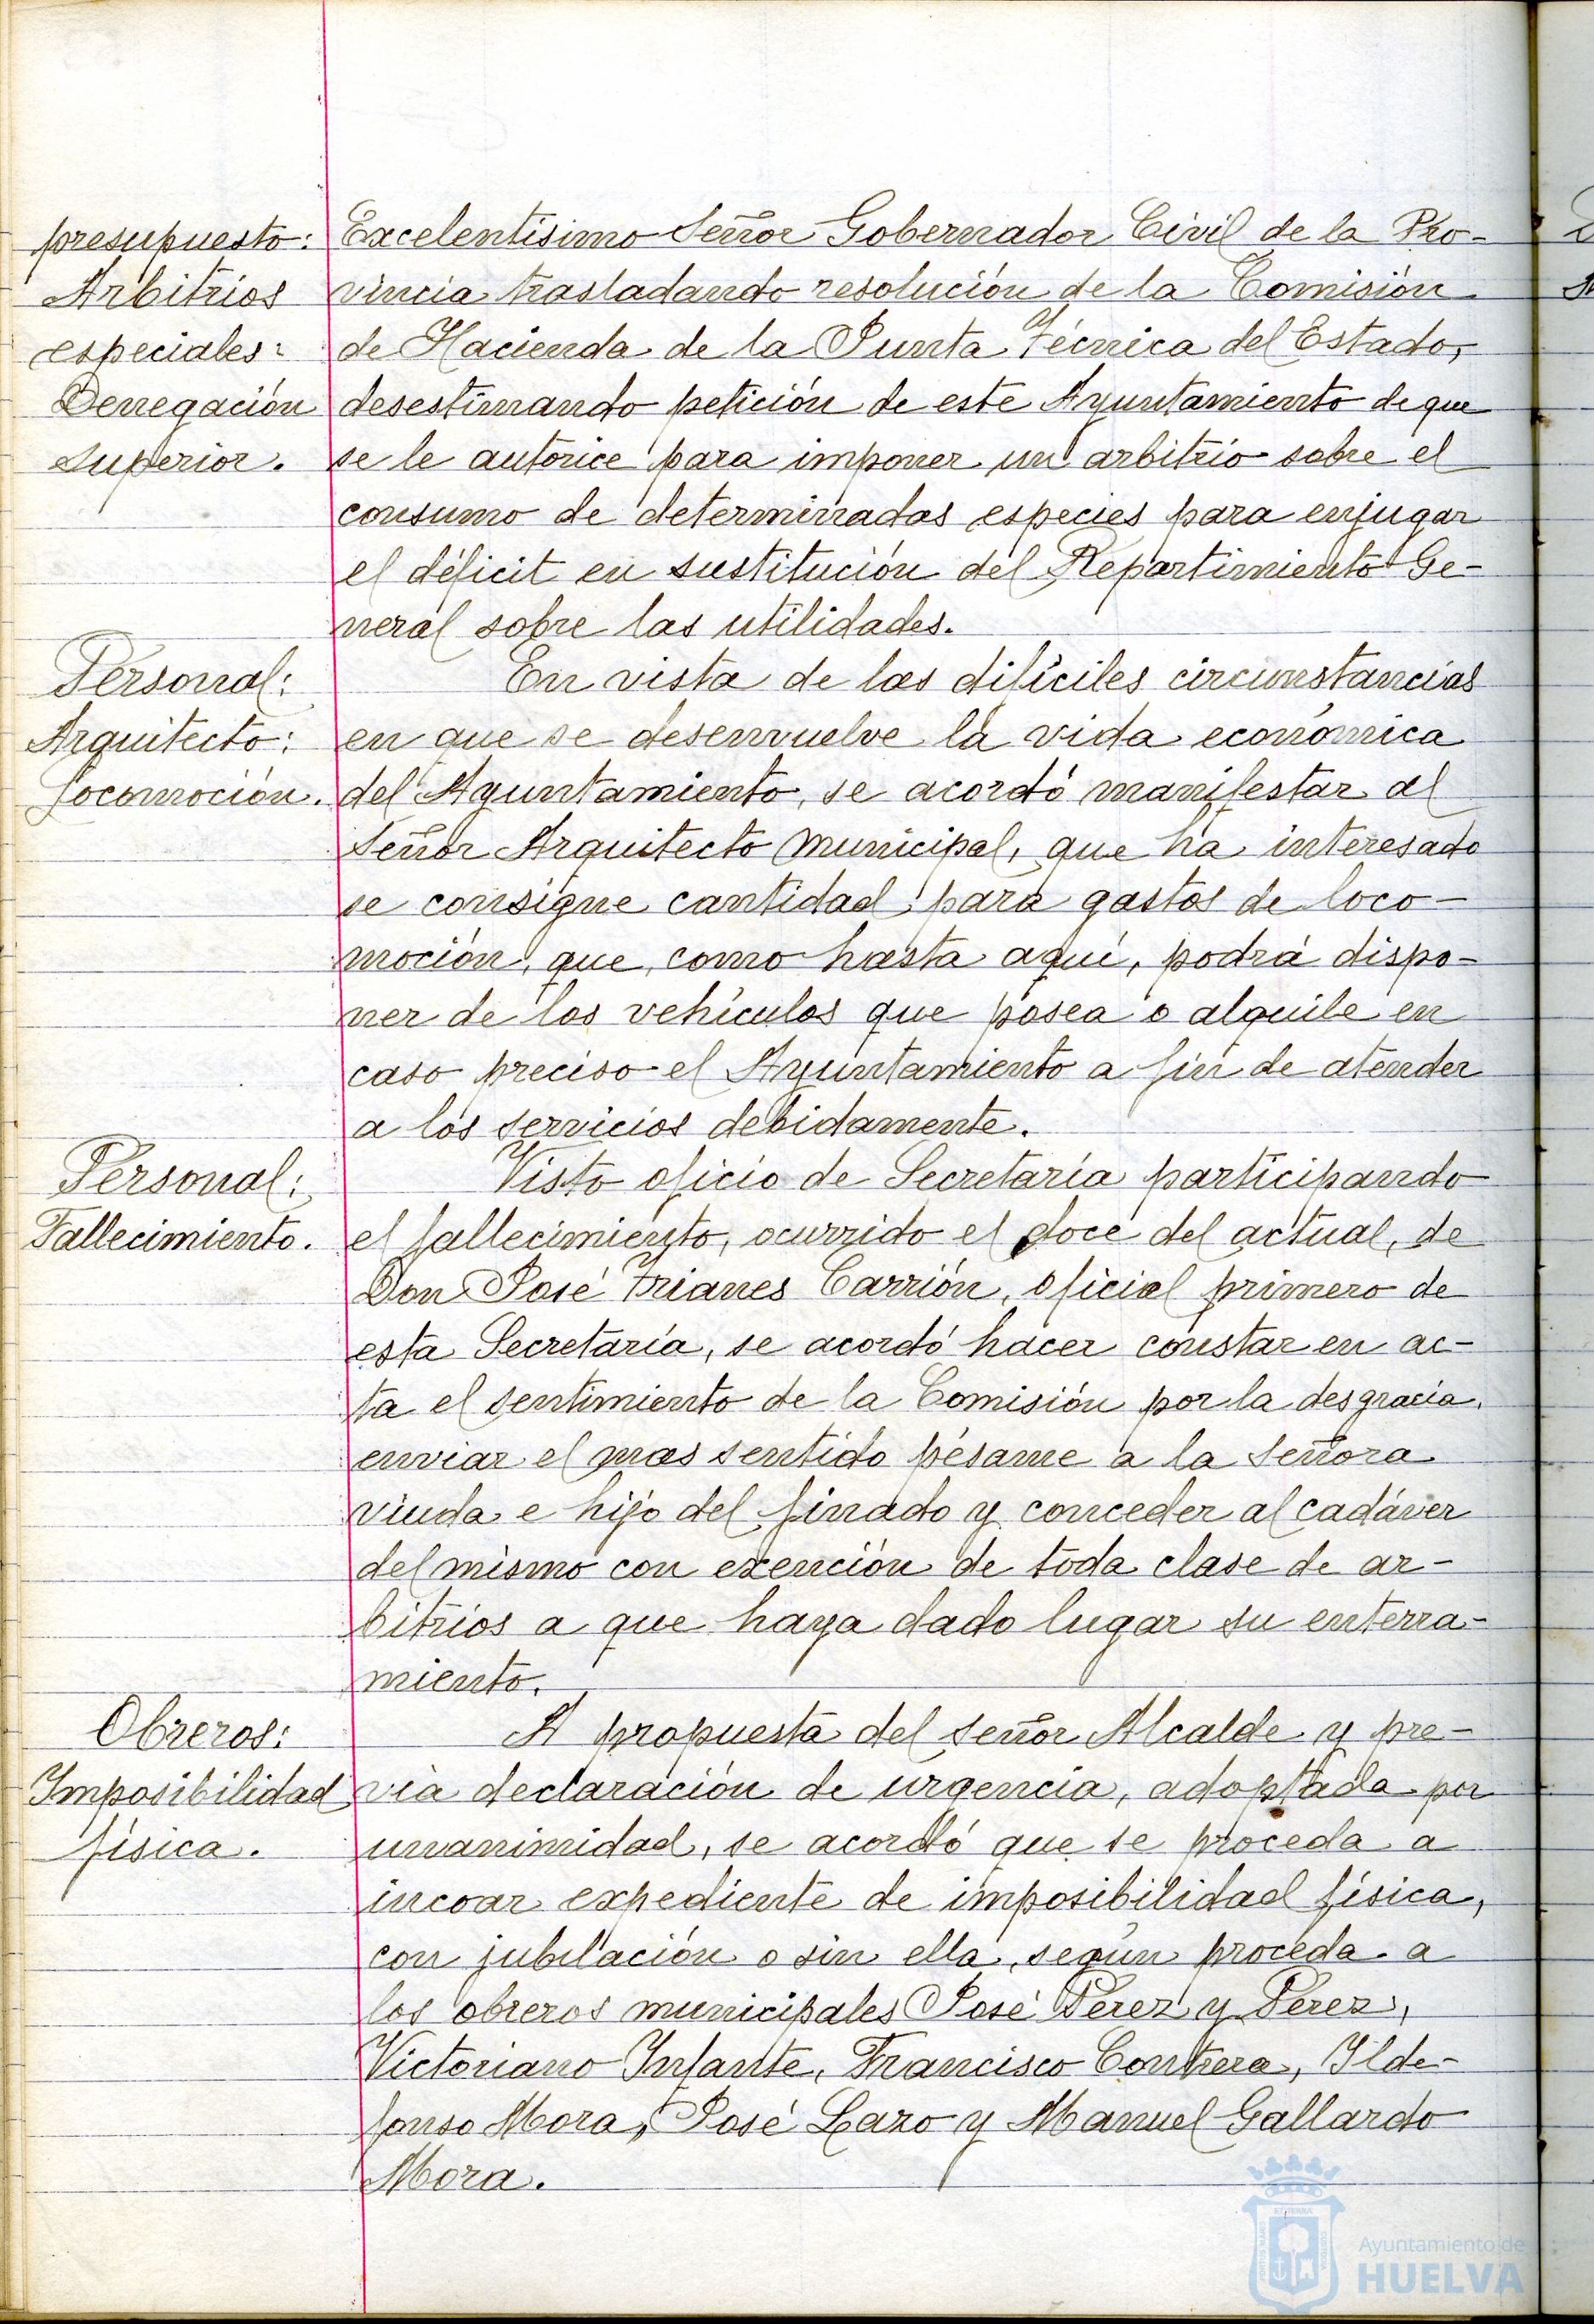 presupuesto:
Arbitrios
especiales:
Denegación
superior.
Excelentísimo Señor Gobernador Civil de la Pro-
vincia trasladando resolución de la Comisión
de Hacienda de la Junta Técnica del Estado,
desestimando petición de este Ayuntamiento de que
se le autorice para imponer un arbitrio sobre el
consumo de determinadas especies para enjugar
el déficit en sustitución del Repartimiento Ge-
neral sobre las utilidades.
Personal:
Arquitecto:
Locomoción.
En vista de las difíciles circunstancias
en que se desenvuelve la vida económica
del Ayuntamiento, se acordó manifestar al
Señor Arquitecto Municipal, que ha interesado
se consigne cantidad para gastos de loco-
moción, que, como hasta aquí, podrá dispo-
ner de los vehículos que posea o alquile en
caso preciso el Ayuntamiento a fin de atender
a los servicios debidamente.
Personal:
Fallecimiento.
Visto oficio de Secretaría participando
el fallecimiento, ocurrido el doce del actual, de
Don José Trianes Carrión, Oficial primero de
esta Secretaría, se acordó hacer constar en ac-
ta el sentimiento de la Comisión por la desgracia,
enviar el mas sentido pésame a la Señora
viuda e hijo del finado y conceder al cadáver
del mismo con exención de toda clase de ar-
bitrios a que haya dado lugar su enterra-
miento.
Obreros:
Imposibilidad
física.
A propuesta del Señor Alcalde y pre-
via declaración de urgencia, adoptada por
unanimidad, se acordó que se proceda a
incoar expediente de imposibilidad física,
con jubilación o sin ella, según proceda a
los obreros municipales José Perez y Perez,
Victoriano Infante, Francisco Contrera, Ilde-
fonso Mora, José Lazo y Manuel Gallardo
Mora.
Ayuntamiento de
HUELVA